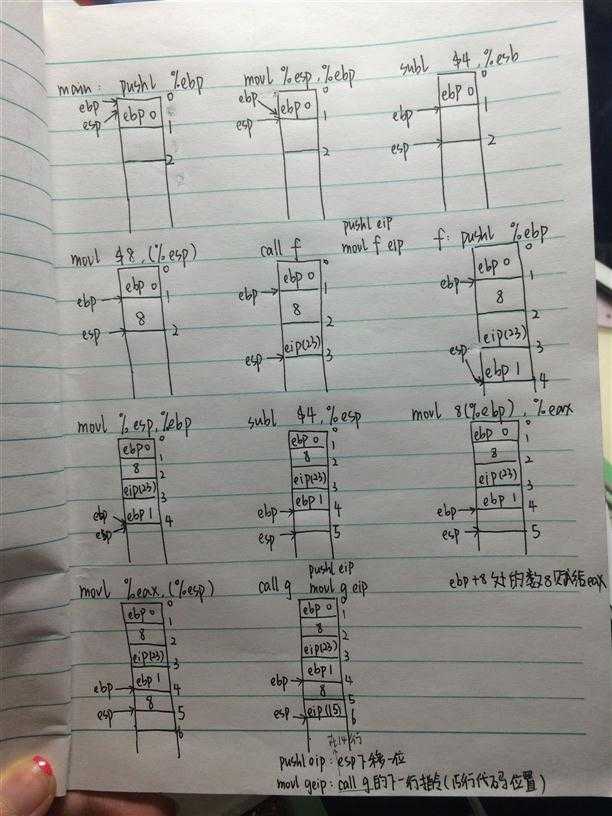 main: pushl %ebp
movl %esp, %ebp
subl $4, %esb
ebp
esp
ebp 0
0
1
2
ebp
esp
ebp 0
0
1
2
ebp
esp
ebp 0
0
1
2
movl $8, (%esp)
call f
pushl eip
movl f eip
f: pushl %ebp
ebp
esp
ebp 0
8
0
1
2
ebp
esp
ebp 0
8
eip(23)
0
1
2
3
ebp
esp
ebp 0
8
eip(23)
ebp 1
0
1
2
3
4
movl %esp, %ebp
subl $4, %esp
movl 8(%ebp), %eax
ebp
esp
ebp 0
8
eip(23)
ebp 1
0
1
2
3
4
ebp
esp
ebp 0
8
eip(23)
ebp 1
0
1
2
3
4
5
ebp
esp
ebp 0
8
eip(23)
ebp 1
0
1
2
3
4
5
ebp+8处的数8 eax
movl %eax, (%esp)
call g
pushl eip
movl g eip
ebp
esp
ebp 0
8
eip(23)
ebp 1
8
0
1
2
3
4
5
6
ebp
esp
ebp 0
8
eip(23)
ebp 1
8
eip(15)
0
1
2
3
4
5
6
在14行
pushl eip: esp下移一位
movl geip: call g的下一行指令(15行代码位置)